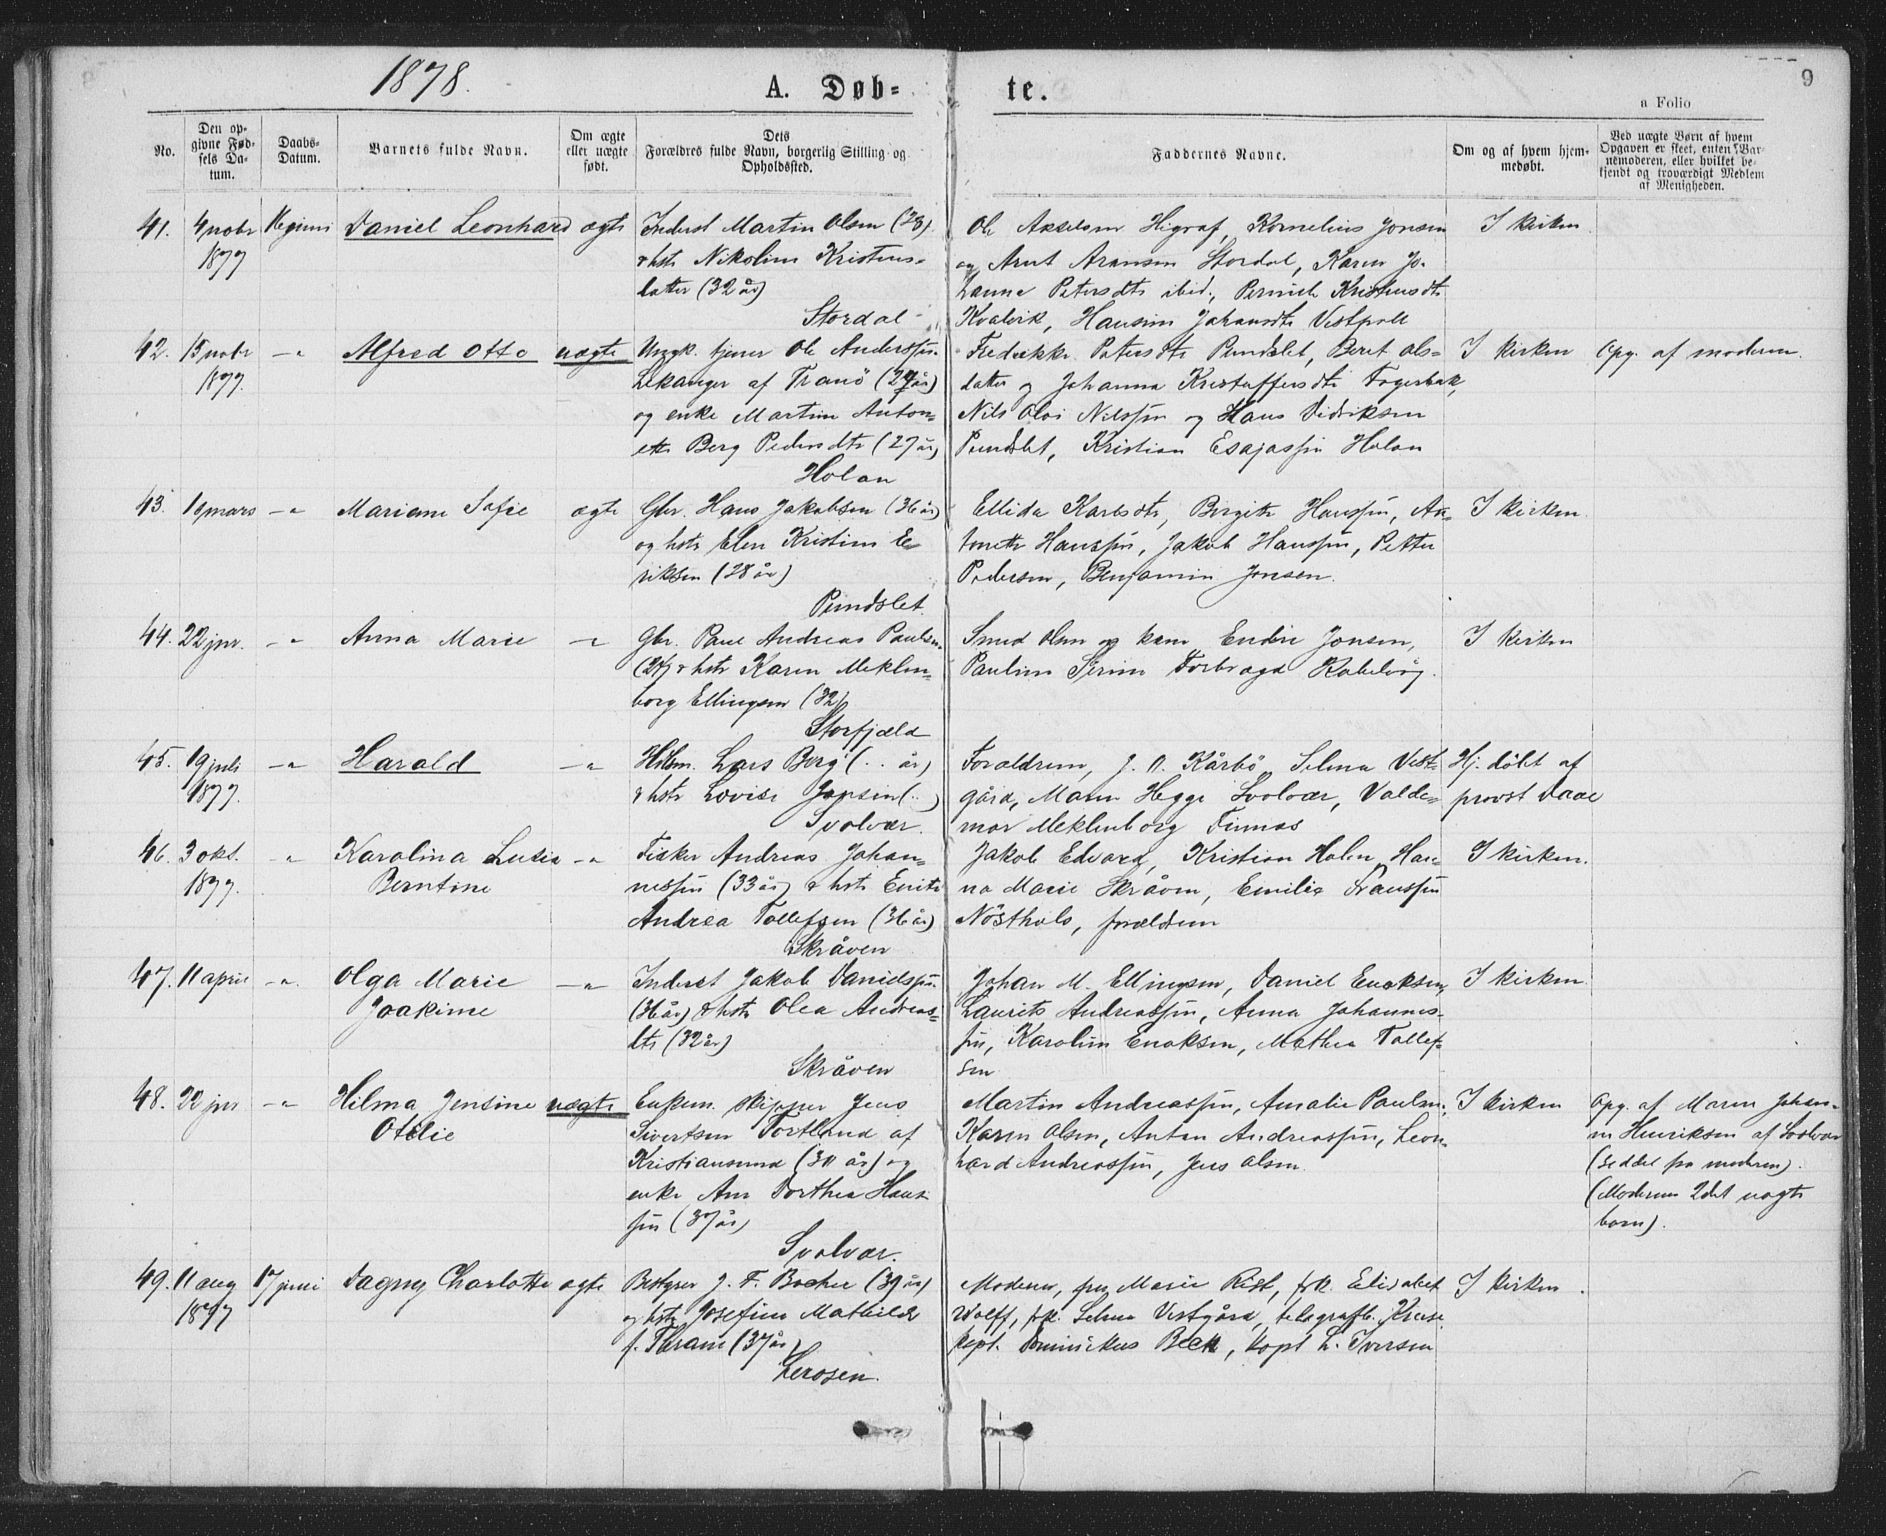 1878.
A. Døb-
te.
9
a Folio
No.
Den op-
givne Fød-
sels Da-
tum.
Daabs-
Datum.
Barnets fulde Navn.
Om ægte
eller uægte
født.
Dets
Forældres fulde Navn, borgerlig Stilling og
Opholdssted.
Faddernes Navne.
Om og af hvem hjem-
medøbt.
Ved uægte Børn af hvem
Opgaven er skeet, enten Bar-
nemoderen, eller hvilket be-
kjendt og troværdigt Medlem
af Menigheden.
41. 4 nobr 16 juni Daniel Leonhard ægte Inderst Martin Olsen (28)
1877
& hst Nikoline Kristens-
datter (32 år)
Stordal
Ole Akselsen Higraf, Kornelius Jonsen
og Arnt Aronsen Stordal, Karen Jo-
hanna Petersdtr ibid., Pernille Kristensdtr
Kvalvik, Hansine Johansdtr Vestpoll
I kirken
42. 15 nobr -"- Alfred Otto uægte Ungk. tjener Ole Anderssen
1877.
Lekanger af Tranö (27 år)
og enke Martine Anton-
ette Berg Pedersdtr (27 år)
Holan
Fredrikke Petersdtr Pundslet, Beret Ols-
datter og Johanna Kristoffersdtr Fagerbak,
Nils Olai Nilssen og Hans Didriksen
Pundslet, Kristian Esajassen Holan
I kirken
Opg. af moderen.
43. 19 mars -"- Mariane Sofie ægte Gbr. Hans Jakobsen (36 år)
og hst Elen Kristine E-
riksen (28 år)
Pundslet.
Ellida Karlsdtr, Birgitte Hanssen, An-
tonette Hanssen, Jakob Hanssen, Petter
Pedersen, Benjamin Jonsen.
I kirken.
44. 22 jnr. -"- Anna Marie -"- Gbr. Paul Andreas Paulsen
(24) & hst Karen Meklen-
borg Ellingsen (32)
Storfjæld
Smed Olsen og kone Endre Jonsen,
Pauline Serine Torbraga Kabelvåg.
I kirken
45. 19 juli -"- Harald -"- Hdlm. Lars Berg (.. år)
1877.
& hst Lovise Jonsen (..)
Svolvær.
Forældrene, J. A. Kårbö, Selma Vest-
gård, Maren Hegge Svolvær, Valde-
mar Meklenborg Finnæs
Hj. döbt af
provst Daae
46. 3 okt. -"- Karolina Lusia -"- Fisker Andreas Johan-
1877.
Berntine
nessen (33 år) & hst Enite
Andrea Tollefsen (36 år)
Skråven
Jakob Edvard, Kristian Holm, Han-
na Marie Skråven, Emilie Franssen
Nösthols, forældrene
I kirken.
47. 11 april -"- Olga Marie -"- Inderst Jakob Danielssen
Joakime
(36 år) & hst Olea Andreas-
dtr (32 år)
Skråven
Johan M. Ellingsen, Daniel Enoksen,
Laurits Andreassen, Anna Johannes-
sen, Karoline Enoksen, Mathea Tollef-
sen
I kirken.
48. 22 jnr -"- Hilma Jensine uægte Enkem. skipper Jens
Otelie
Sivertsen Fortland af
Kristiansund (30 år) og
enke Ane Dorthea Hans-
sen (37 år)
Svolvær.
Martin Andreassen, Amalie Paulsen,
Karen Olsen, Anton Andreassen, Leon-
hard Andreassen, Jens Olsen
I kirken
Opg. af Maren Johan-
ne Henriksen af Svolvær
(seddel fra moderen).
(Moderens 2det uægte
barn).
49. 11 aug 17 juni Dagny Charlotte ægte Bestyrer J. F. Bocher (39 år)
1877
og hst Josefine Mathilde
f. Thrane (37 år)
Lerosen.
Moderen, fru Marie Rist, frk. Elisabet
Wolff, frk. Selma Vestgård, telegrafb. Kruse
kapt. Dominikus Beck, kapt L. Iversen
I kirken.